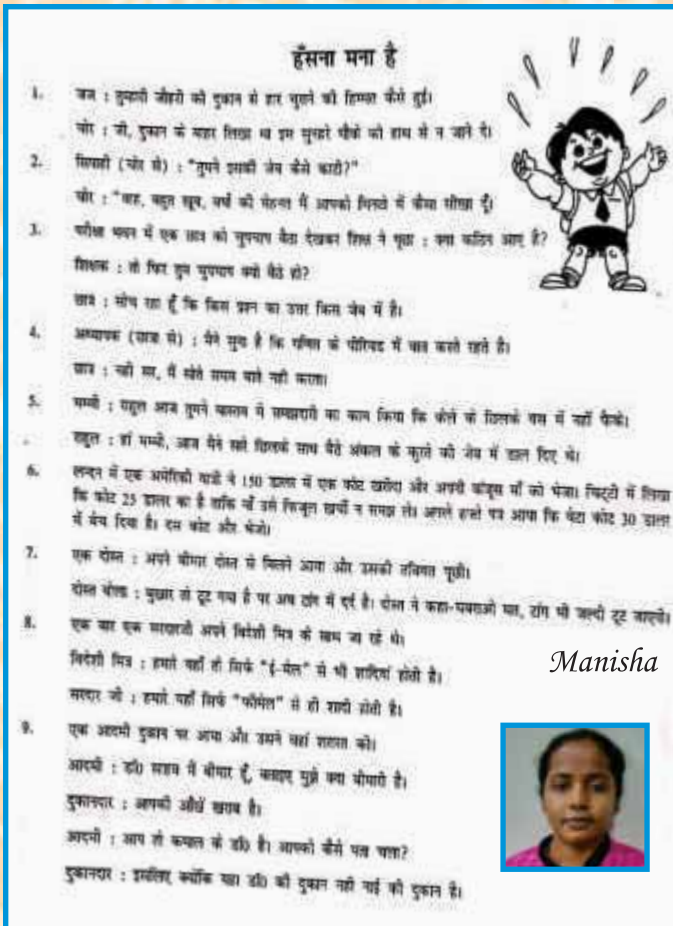 हँसना मना है
1. जज : तुम्हारी जौहरी की दुकान से हार चुराने की हिम्मत कैसे हुई।
चोर : जी, दुकान के बाहर लिखा था इस सुनहरे मौके को हाथ से न जाने दें।
2. सिपाही (चोर से) : "तुमने इसकी जेब कैसे काटी?"
चोर : "वाह, बहुत खूब, वर्षों की मेहनत मैं आपको मिनटों में कैसे सीखा दूँ।
3. परीक्षा भवन में एक छात्र को चुपचाप बैठा देखकर ने पूछा : क्या कठिन आए है?
शिक्षक : तो फिर तुम चुपचाप क्यों बैठे हो?
छात्र : सोच रहा हूँ कि किस प्रश्न का उत्तर किस जेब में है।
4. अध्यापक (छात्र से) : मैंने सुना है कि गणित के पीरियड में बात करते रहते है।
छात्र : नहीं सर, मैं सोते समय बातें नहीं करता।
5. मम्मी : राहुल आज तुमने वास्तव में समझदारी का काम किया कि केले के छिलके बस में नहीं फैंके।
राहुल : हां मम्मी, आज मैंने सारे छिलके साथ बैठे अंकल के कुरते की जेब में डाल दिए थे।
6. लन्दन में एक अमेरिकी यात्री ने 150 डालर में एक कोट खरीदा और अपनी कंजूस माँ को भेजा। चिट्ठी में लिखा
कि कोट 25 डालर का है ताकि माँ उसे फिजूल खर्ची न समझ ले। अगले हफ्ते पत्र आया कि बेटा कोट 30 डालर
में बेच दिया है। दस कोट और भेजो।
7. एक दोस्त : अपने बीमार दोस्त से मिलने आया और उसकी तबियत पूछी।
दोस्त बोला : बुखार तो टूट गया है पर अब टांग में दर्द है। दोस्त ने कहा-घबराओ मत, टांग भी जल्दी टूट जाएगी।
8. एक बार एक सरदारजी अपने विदेशी मित्र के साथ जा रहे थे।
विदेशी मित्र : हमारे यहाँ तो सिर्फ "ई-मेल" से भी शादियां होती है।
सरदार जी : हमारे यहाँ सिर्फ "फीमेल" से ही शादी होती है।
Manisha
9. एक आदमी दुकान पर आया और उसने वहां शरारत की।
आदमी : डॉ0 साहब मैं बीमार हूँ, बताइए मुझे क्या बीमारी है।
दुकानदार : आपकी आँखें खराब है।
आदमी : आप तो कमाल के डॉ0 है। आपको कैसे पता चला?
दुकानदार : इसलिए क्योंकि यहा डॉ0 की दुकान नहीं नाई की दुकान है।